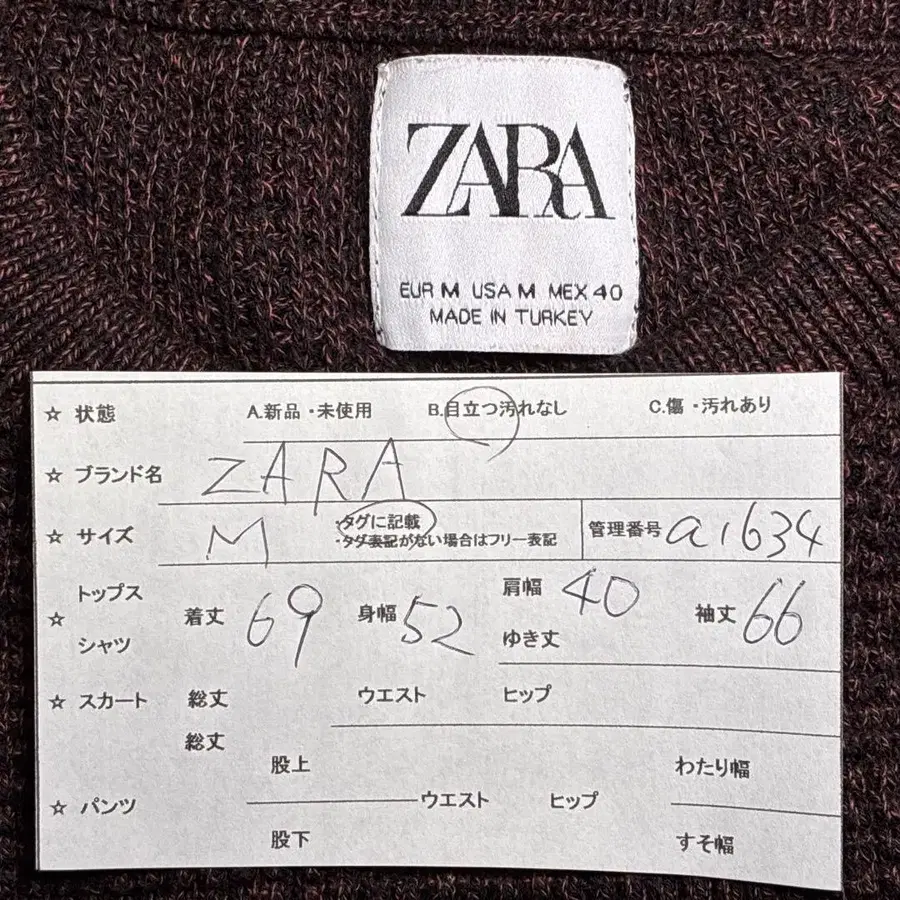 ZARA
EUR M USA M MEX 40
MADE IN TURKEY
☆ 状態 A.新品・未使用 B.目立つ汚れなし C.傷・汚れあり
☆ ブランド名 ZARA
☆ サイズ M ・タグに記載 管理番号 a1634
・タグ表記がない場合はフリー表記
トップス 肩幅 40
☆ 着丈 69 身幅 52 袖丈 66
シャツ ゆき丈
☆ スカート 総丈 ウエスト ヒップ
総丈
股上 わたり幅
☆ パンツ ウエスト ヒップ
股下 すそ幅